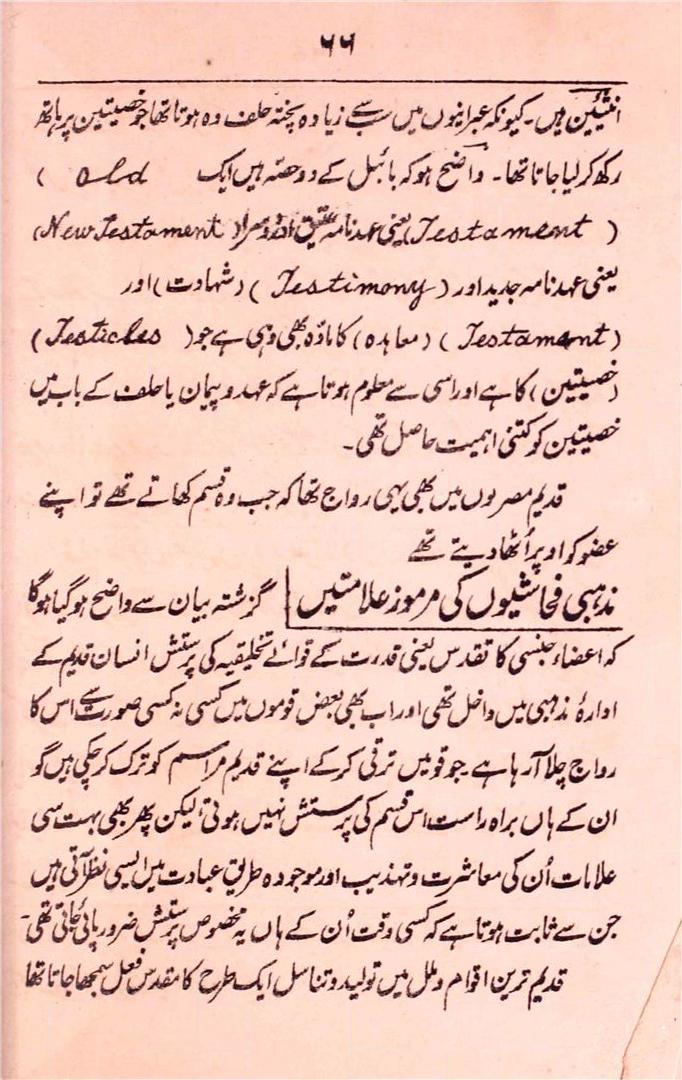 ۶۶
انثیین ہیں۔ کیونکہ عبرانیوں میں سب سے زیادہ پختہ حلف وہ ہوتا تھا جو خصیتین پر ہاتھ
رکھ کر لیا جاتا تھا۔ واضح ہو کہ بائبل کے دو حصّہ ہیں ایک (Old
Testament) یعنی عہد نامہ عتیق اور دوسرا (New Testament)
یعنی عہد نامہ جدید اور (Testimony) (شہادت) اور
(Testament) (معاہدہ) کا مادّہ بھی وہی ہے جو (Testicles)
(خصیتین) کا ہے اور اسی سے معلوم ہوتا ہے کہ عہد و پیمان یا حلف کے باب میں
خصیتین کو کتنی اہمیت حاصل تھی۔
قدیم مصریوں میں بھی یہی رواج تھا کہ جب وہ قسم کھاتے تھے تو اپنے
عضو کو اوپر اُٹھا دیتے تھے
مذہبی فحاشیوں کی مرموز علامتیں گزشتہ بیان سے واضح ہو گیا ہوگا
کہ اعضاء جنسی کا تقدس یعنی قدرت کے قوائے تخلیقیہ کی پرستش انسان قدیم کے
ادارۂ مذہبی میں داخل تھی اور اب بھی بعض قوموں میں کسی نہ کسی صورت سے اس کا
رواج چلا آ رہا ہے۔ جو قومیں ترقی کر کے اپنے قدیم مراسم کو ترک کر چکی ہیں گو
ان کے ہاں براہ راست اس قسم کی پرستش نہیں ہوتی، لیکن پھر بھی بہت سی
علامات اُن کی معاشرت و تہذیب اور موجودہ طریق عبادت میں ایسی نظر آتی ہیں
جن سے ثابت ہوتا ہے کہ کسی وقت اُن کے ہاں یہ مخصوص پرستش ضرور پائی جاتی تھی۔
قدیم ترین اقوام و ملل میں تولید و تناسل ایک طرح کا مقدس فعل سمجھا جاتا تھا